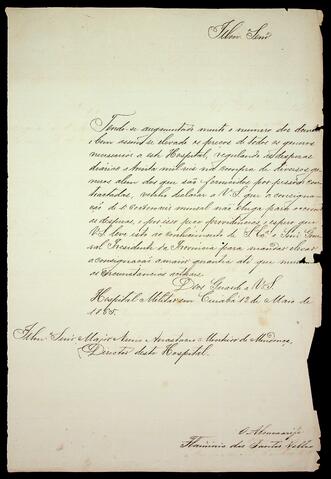 Illmo Senr
Tendo-se augmentado muito o numero dos doentes
e bem assim se elevado os preços de todos os generos
necessarios a este Hospital, regulando as despesas
diarias a trinta mil reis na compra de diversos ge-
neros alem dos que são fornecidos por pessoas con-
tractadas, resulta declarar a V.S. que a consigna-
ção de mensal não chega para
as despesas, e por isso peço providencias, e espero que
V.S. leve isto ao conhecimento de S. Exa o Senr Gene-
ral Presidente da Provincia para mandar elevar
a consignação a maior quantia até que mudem
as circunstancias
Deos Guarde a V.S.
Hospital Militar em Cuiabá 12 de Maio de
1865.
Illmo Senr Major Anno Anastacio Monteiro de Mendonça,
Director deste Hospital.
O Almoxarife
Flaminio dos Santos